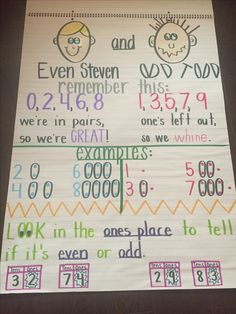 and
Even Steven ODD TODD
remember this:
0,2,4,6,8 1,3,5,7,9
we're in pairs, one's left out,
so we're GREAT! so we whine.
examples:
2 6 1 5
4 8 3 7
LOOK in the ones place to tell
if it's even or odd.
Tens Ones Tens Ones Tens Ones Tens Ones
3 2 7 4 2 9 8 3